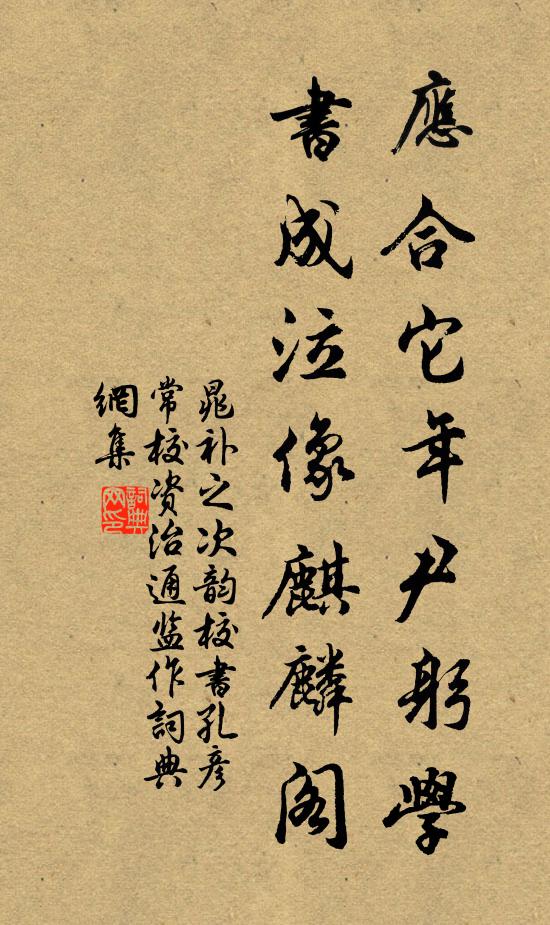 應合它年尹躬學
書成泣像麒麟阁
晁补之次韵校書孔彦
常校资治通监作詞典
網集
詞典網印